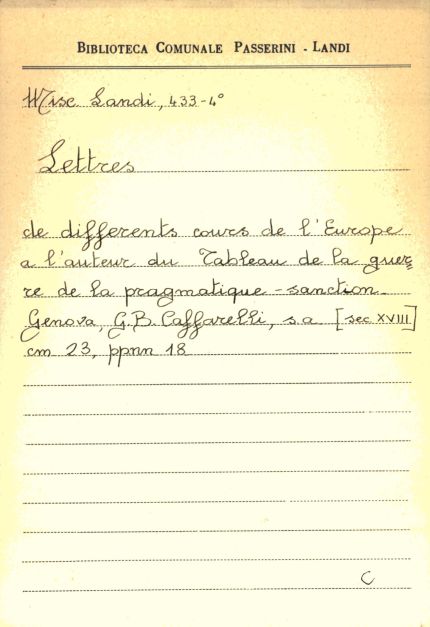 BIBLIOTECA COMUNALE PASSERINI - LANDI
Misc. Landi, 433-4°
Lettres
de differents cours de l'Europe
a l'auteur du Tableau de la guer=
re de la pragmatique-sanction.
Genova, G.B. Caffarelli, s.a. [sec XVIII]
cm 23, ppnn 18
C